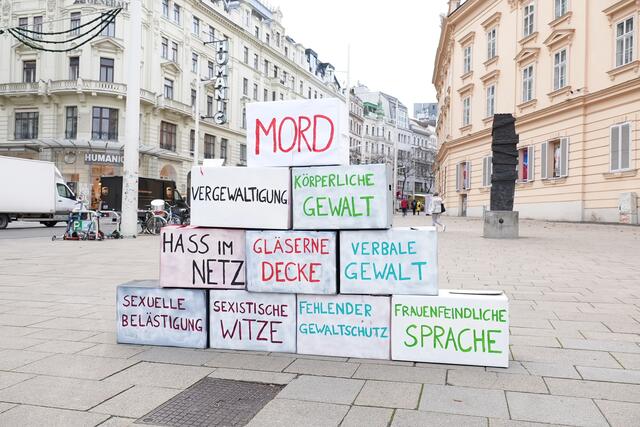 HUMANIC
HUMANIC
MORD
VERGEWALTIGUNG
KÖRPERLICHE
GEWALT
HASS IM
NETZ
GLÄSERNE
DECKE
VERBALE
GEWALT
SEXUELLE
BELÄSTIGUNG
SEXISTISCHE
WITZE
FEHLENDER
GEWALTSCHUTZ
FRAUENFEINDLICHE
SPRACHE